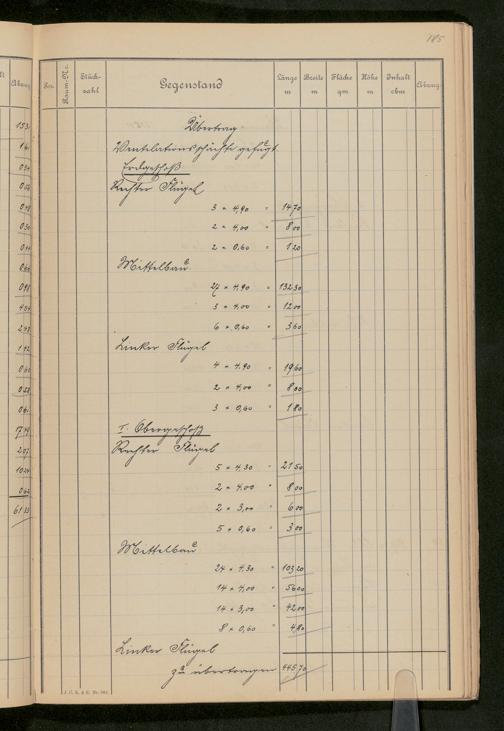 185
Pos. Raum-No. Stück-zahl Gegenstand Länge m Breite m Fläche qm Höhe m Inhalt cbm Abzug
Übertrag
Ventilationsschächte gefugt
Erdgeschoß
Rechter Flügel
3 × 4,90 " 14 70
2 × 4,00 " 8 00
2 × 0,60 " 1 20
Mittelbau
27 × 4.90 " 132 30
3 × 4.00 " 12 00
6 × 0,60 " 3 60
Linker Flügel
4 × 4.90 " 19 60
2 × 4,00 " 8 00
3 × 0,60 " 1 80
I. Obergeschoß
Rechter Flügel
5 × 4,30 " 21 50
2 × 4.00 " 8 00
2 × 3,00 " 6 00
5 × 0,60 " 3 00
Mittelbau
24 × 4.30 " 103 20
14 × 4,00 " 56 00
14 × 3,00 " 42 00
8 × 0,60 " 4 80
Linker Flügel
zu übertragen 445 70